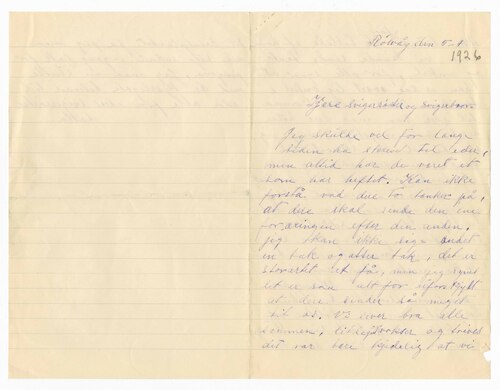 Rölvåg den 5-1
1926
Kjere Svigerinde og Svigerbror
Jeg skulde vel for lenge
siden ha skrevet til eder,
men altid har de veret et
som har heftet. Kan ikke
forstå vad dere to tenker på,
at dere skal sende den ene
foræringen efter den anden,
jeg kan ikke sige andet
en tak og atter tak, det er
storartet at få, men jeg synes
det er som alt for
at dere sender så meget
til os. Vi lever bra alle
sammen, og trives
det var bare kjedelig at vi